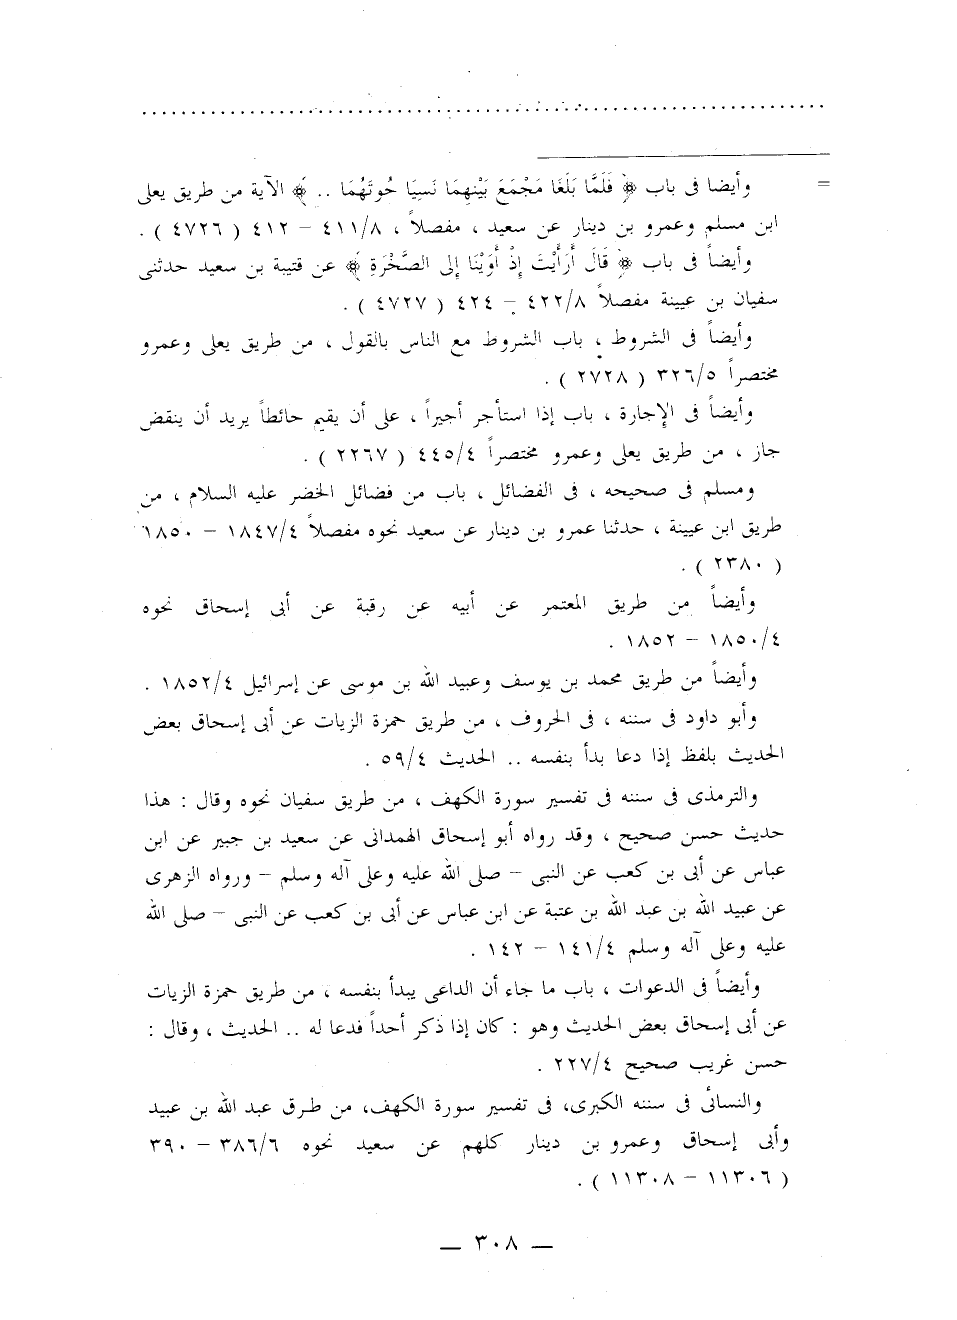 = وأيضا فى باب ﴿ فَلَمَّا بَلَغَا مَجْمَعَ بَيْنِهِمَا نَسِيَا حُوتَهُمَا .. ﴾ الآية من طريق يعلى
ابن مسلم وعمرو بن دينار عن سعيد ، مفصلاً ، ٤١١/٨ – ٤١٢ ( ٤٧٢٦ ) .
وأيضاً فى باب ﴿ قَالَ أَرَأَيْتَ إِذْ أَوَيْنَا إِلى الصَّخْرَةِ ﴾ عن قتيبة بن سعيد حدثنى
سفيان بن عيينة مفصلاً ٤٢٢/٨ – ٤٢٤ ( ٤٧٢٧ ) .
وأيضاً فى الشروط ، باب الشروط مع الناس بالقول ، من طريق يعلى وعمرو
مختصراً ٣٢٦/٥ ( ٢٧٢٨ ) .
وأيضاً فى الإجارة ، باب إذا استأجر أجيراً ، على أن يقيم حائطاً يريد أن ينقض
جاز ، من طريق يعلى وعمرو مختصراً ٤٤٥/٤ ( ٢٢٦٧ ) .
ومسلم فى صحيحه ، فى الفضائل ، باب من فضائل الخضر عليه السلام ، من
طريق ابن عيينة ، حدثنا عمرو بن دينار عن سعيد نحوه مفصلاً ١٨٤٧/٤ – ١٨٥٠
( ٢٣٨٠ ) .
وأيضاً من طريق المعتمر عن أبيه عن رقبة عن أبى إسحاق نحوه
١٨٥٠/٤ – ١٨٥٢ .
وأيضاً من طريق محمد بن يوسف وعبيد الله بن موسى عن إسرائيل ١٨٥٢/٤ .
وأبو داود فى سننه ، فى الحروف ، من طريق حمزة الزيات عن أبى إسحاق بعض
الحديث بلفظ إذا دعا بدأ بنفسه .. الحديث ٥٩/٤ .
والترمذى فى سننه فى تفسير سورة الكهف ، من طريق سفيان نحوه وقال : هذا
حديث حسن صحيح ، وقد رواه أبو إسحاق الهمدانى عن سعيد بن جبير عن ابن
عباس عن أبى بن كعب عن النبى – صلى الله عليه وعلى آله وسلم – ورواه الزهرى
عن عبيد الله بن عبد الله بن عتبة عن ابن عباس عن أبى بن كعب عن النبى – صلى الله
عليه وعلى آله وسلم ١٤١/٤ – ١٤٢ .
وأيضاً فى الدعوات ، باب ما جاء أن الداعى يبدأ بنفسه ، من طريق حمزة الزيات
عن أبى إسحاق بعض الحديث وهو : كان إذا ذكر أحداً فدعا له .. الحديث ، وقال :
حسن غريب صحيح ٢٢٧/٤ .
والنسائى فى سننه الكبرى، فى تفسير سورة الكهف، من طرق عبد الله بن عبيد
وأبى إسحاق وعمرو بن دينار كلهم عن سعيد نحوه ٣٨٦/٦ – ٣٩٠
( ١١٣٠٦ – ١١٣٠٨ ) .
— ٣٠٨ —